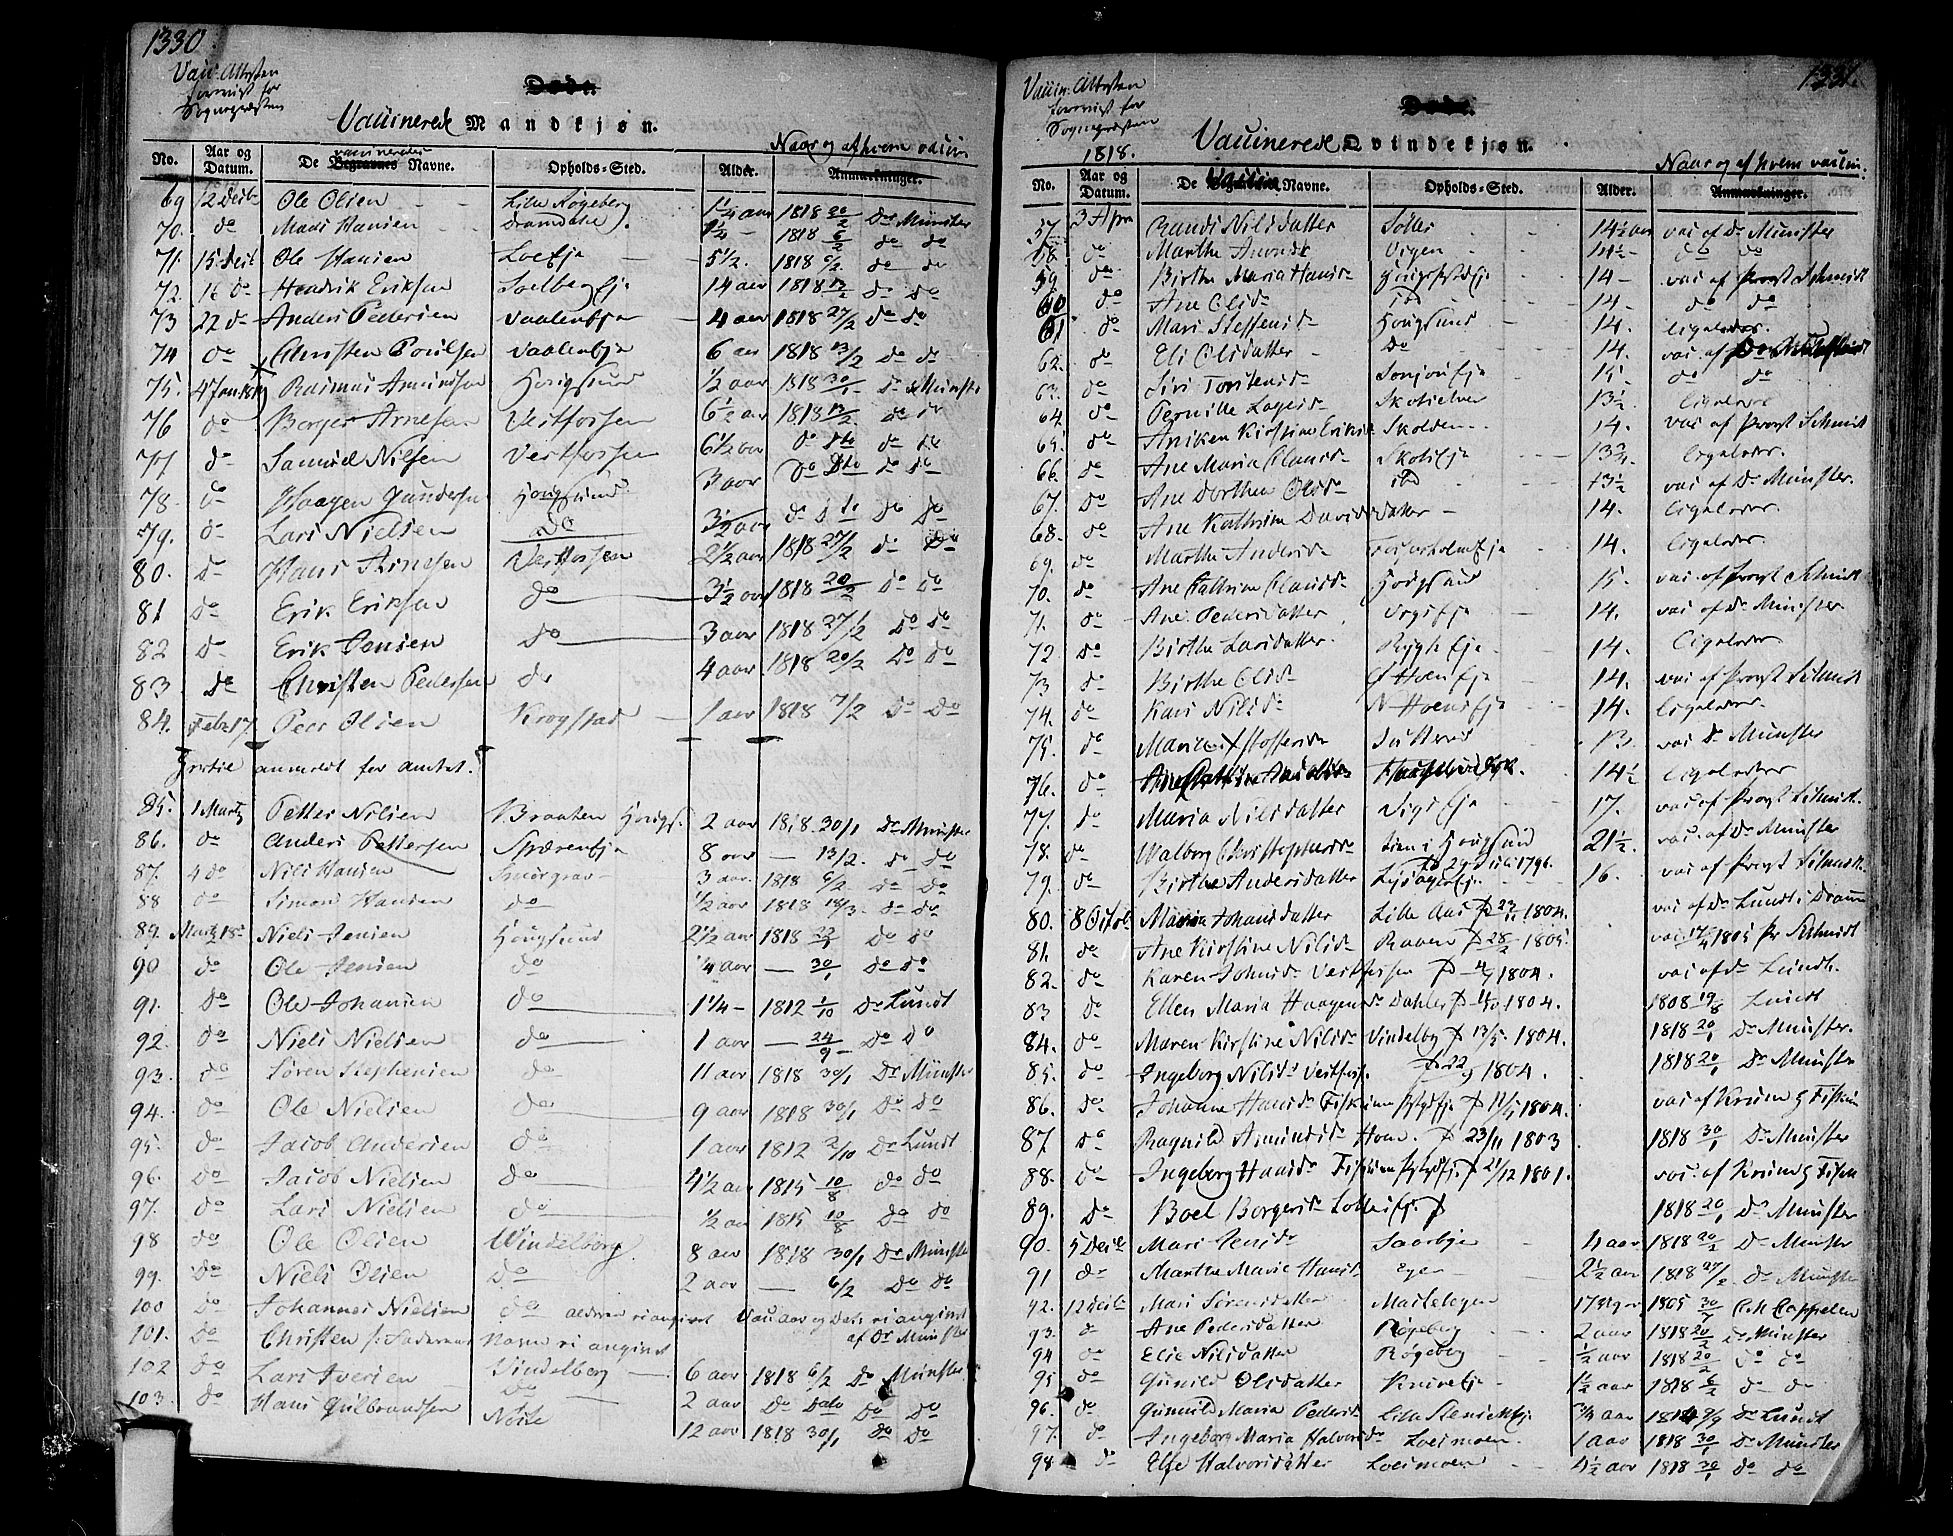 1330
Vaccin: Attesten
forevist for
Sognepræsten
Døde.
Vaccinerede Mandkjøn.
Naar og af hvem vaccin:
No. Aar og Datum. De Begravnes vaccineredes Navne. Opholds-Sted. Alder. Anmærkninger.
69 12 Decbr Ole Olsen - - Lille Røgeberg 1 1/4 aar 1818 20/2 Dr Münster
70. do Mads Hansen - - 1 1/4 - 1818 6/2 do do
71. 15 Decbr Ole Hansen Loe Eje 5 1/2. 1818 6/2 do do
72. 16 do Hendrik Eriksen Soelberg Eje 14 aar 1818 13/2 do do
73 22 do Anders Pedersen Vaalen Eje 4 aar 1818 27/2 do do
74 do Christen Poulsen Vaalen Eje 6 aar 1818 13/2 do do
75. Rasmus Amundsen Hougsund 1/2 aar 1818 30/1 Dr Münster
76 do Borger Arnesen Vestfossen 6 1/2 aar 1818 13/2 do do
77 do Samuel Nilsen Vestfossen 6 1/2 aar do dto do do
78. do Haagen Gundersen Hougsund 3 aar do dto do do
79. do Lars Nielsen do 3 1/2 aar do dto do do
80. do Hans Arnesen Vestfossen 2 1/2 aar 1818 27/2 do do
81 do Erik Eriksen do 3 1/2 aar 1818 20/2 do do
82 do Erik Jensen do 3 aar 1818 27/2 do do
83 do Christen Pedersen do 4 aar 1818 20/2 do do
84. Febr 17. Peer Olsen Krogstad 1 aar 1818 7/2 do do
anmeldt for Amtet.
85. 1 Martz Petter Nilsen Braaten Hougs. 2 aar 1818 30/1 Dr Münster
86. do Anders Pettersen Spæren Eje 8 aar - 13/2. do do
87. 4 do Nils Hansen Smørgrav 3 aar 1818 6/2 do do
88 do Simon Hansen do 1/2 aar 1818 18/3. do do
89. Martz 18 Niels Jensen Hougsund 2 1/2 aar 1818 do do
90 do Ole Jensen do 1/4 aar - 30/1 do do
91. do Ole Johansen do 1 1/4 - 1812 1/10 Dr Lundt
92. do Niels Nielsen do 1 aar - 24/9 - do do
93. do Søren Stephensen do 11 aar 1818 30/1 Dr Münster
94. do Ole Nielsen do 9 aar 1818 30/1 do do
95. do Jacob Andersen do 1 aar 1812 2/10 Dr Lundt
96. do Jacob Nielsen do 4 1/2 aar 1815 10/8 do do
97. do Lars Nielsen do 1/2 aar 1815 10/8 do do
98 do Ole Olsen Windelborg 8 aar 1818 30/1 Dr Münster
99. do Niels Olsen do 2 aar - 6/2 do do
100 do Johannes Nielsen do alderen ei angivet Vacc aar og Dato ei angivet
101. do Christen Faderens Navn ei angivet af Dr Münster
102 do Lars Iversen Vindelborg 6 aar 1818 6/2 Dr Münster
103. do Hans Gulbrandsen do 2 aar do Dato do do
Nøste 12 aar 1818 30/1 do do
1331.
Vaccin: Attesten
forevist for
Sognepræsten
1818.
Døde.
Vaccinerede Qvindekjøn.
Naar og af hvem vaccin:
No. Aar og Datum. De Vaccin Navne. Opholds-Sted. Alder. Anmærkninger.
57. 3 Apr Randi Nilsdatter 14 1/2 aar vac af Dr Münster
58. do Marthe Amunds Vegen 14 1/2 - do do
59. do Birthe Maria Hansdr 14 - vac af Provst Schmidt
60 do Ane Olsdr 14 - do do
61 do Mari Steffensdr Hougsund 14. ligeledes.
62. do Eli Olsdatter - do 14. vac af
63. do Siri Torstensdr 15 do do
64. do Pernille Lagesdr 13 1/2 ligeledes
65. do Aniken Kirstine Eriksdr Skolden - 14. vac af Provst Schmidt
66. do Ane Maria Clausdr 13 3/4. ligeledes.
67. do Ane Dorthea Olsdr 13 1/2 vac af Dr Münster.
68. do Ane Kathrine Davidsdatter - 14. ligeledes.
69. do Marthe Andersdr 14. ligeledes
70. do Ane Cathrine Clausdr Hougsund 15. vac af Provst Schmidt
71. do Ane Pedersdatter 14. vac af Dr Münster.
72 do Birthe Larsdatter. Rygh Eje 14. ligeledes
73 do Birthe Olsdr Hoens Eje 14. vac af Provst Schmidt
74. do Kari Nilsdr N Hoens Eje 14. ligeledes.
75. do 13 vac Dr Münster
76. do 14 1/2 ligeledes
77. do Maria Nilsdatter 17. vac af Provst Schmidt.
78. do Walborg Christophersdr Lien i Hougsund 21 1/2. vac af Dr Münster
79. do Birthe Andersdatter 1796. 16. vac af Provst Schmidt.
80. 8 Octobr Maria Johansdatter Lille Aas 1804. vac af Dr Lundt i Dramm
81. do Ane Kirstine Nilsdr Raaen 28/2 1805. vac 17/4 1805 Pr Schmidt
82. do Karen Johnsdr Vestfossen 1804. vac af Dr Lundt.
83 do Ellen Maria Haagensdr Dahler 1804. 1808 19/8 Lundt
84. do Maren Kirstine Nilsdr Vindelbg 13/5. 1804. 1818 20/1 Dr Münster.
85. do Ingeborg Nilsdr Vestfoss. 1804. 1818 20/1 Dr Münster
86. do Johanne Hansdr 1804. vac af
87. do Ragnild Amundsdr Hoen. 23/11 1803 1818 30/1 Dr Münster
88. do Ingeborg Hansdr 21/12 1801. vac. af
89. do Boel Borgersdr 1818 20/1 Dr Münster
90. 5 Decbr Mari Jensdr 4 aar 1818 20/2 Dr Münster
91 do Marthe Marie Hansdr Eger 2 1/2 aar 1818 27/2 Dr Münster
92. 12 Decbr Mari Sørensdatter 1805 30/7 C M Cappelen
93. do Ane Pedersdatter Røgeberg 2 aar 1818 20/2 Dr Münster
94 do Elie Nilsdatter Røgeberg 1/2 aar 1818 20/2 do do
95 do Gunild Olsdatter Knive Eje 1 1/2 aar 1818 6/2 do do
96. do Gunnild Maria Pedersdr 3/4 aar 1814 9/9 Dr Lundt
97. do Ingeborg Maria Halvorsdr Loesmoen. 1 aar 1818 30/1 Dr Münster
98 do Else Halvorsdatter Loesmoen 4 1/2 aar 1818 30/1 do do